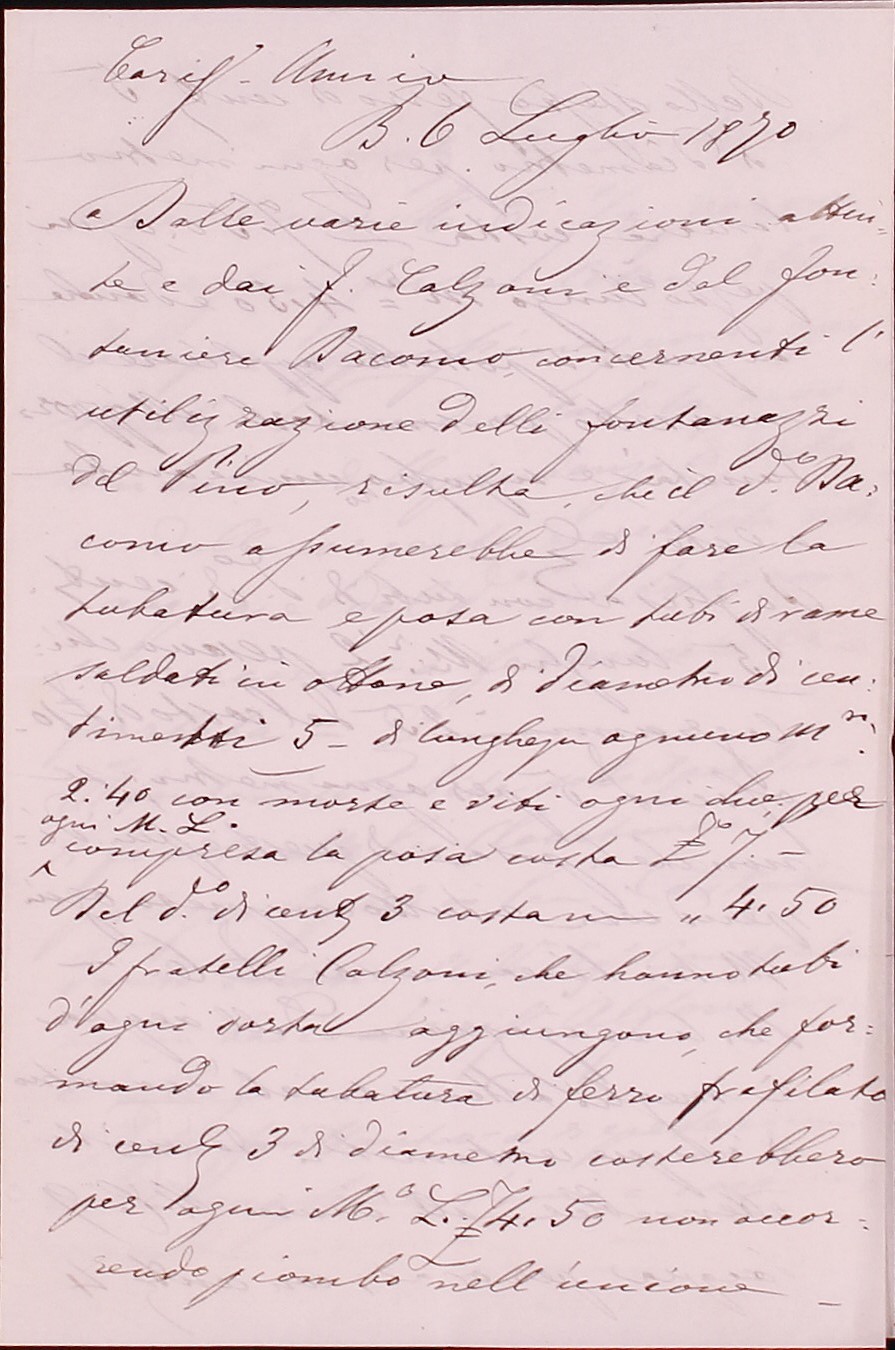 Caris.o Amico
B. 6 Luglio 1870
Dalle varie indicazioni atten=
te e dai f. Calzoni e dal fon=
taniere Dacomo, concernenti l'
utilizzazione delli fontanazzi
del Pino, risulta, che il d.o Da=
como assumerebbe di fare la
tubatura e posa con tubi di rame
saldati in ottone, di diametro di cen=
timetri 5 - di lunghezza ognuno M.ri
2.40 con morse e viti ogni due, per
ogni M. L.
compresa la posa costa £ 7. -
Del d.o di cent. 3 costano " 4.50
I fratelli Calzoni, che hanno tubi
d'ogni sorta aggiungono, che for=
mando la tubatura di ferro trafilato
di cent. 3 di diametro costerebbero
per ogni M.o L. 4.50 non occor=
rendo piombo nell'unione -